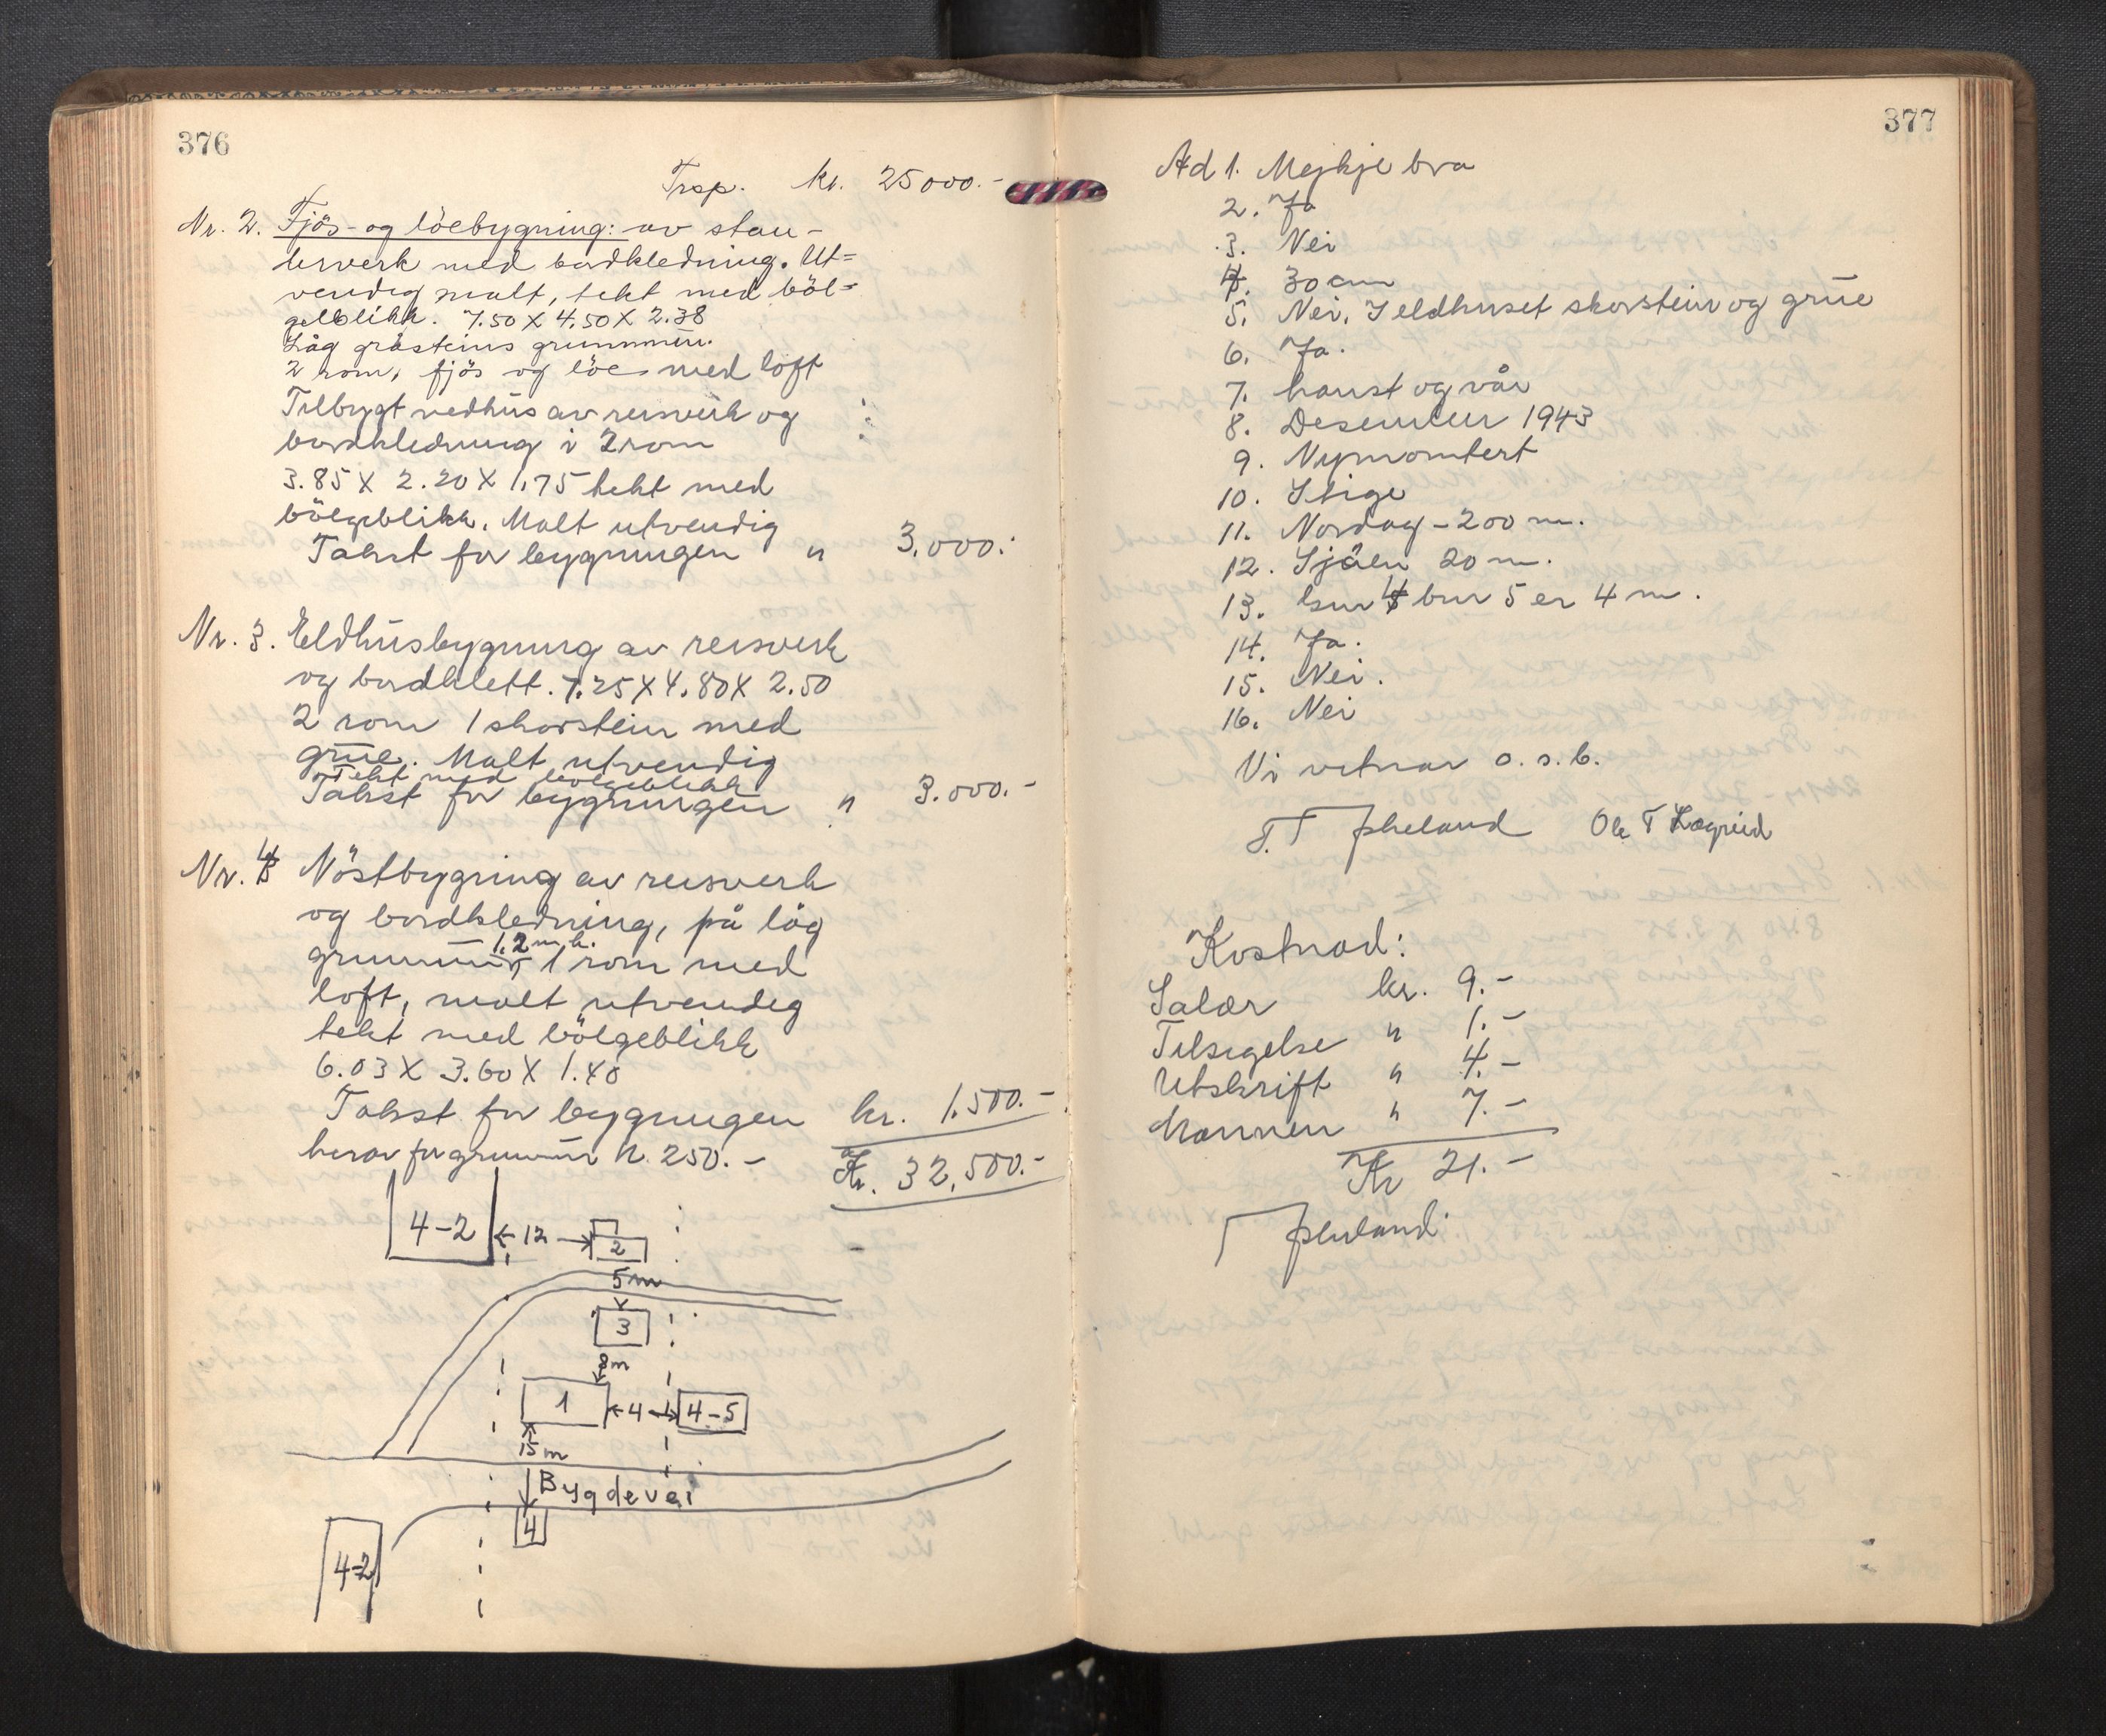 376
Trsp. kr. 25000.-
Nr. 2. Fjös- og löebygning: av stau-
rverk med bordkledning. Ut=
vendig malt, tekt med böl=
gelblikk. 7.50 X 4.50 X 2.38
Låg gråsteins grunnmur.
2 rom, fjös og löe med loft
Tilbygt vedhus av reisverk og
bordkledning i 2 rom
3.85 X 2.20 X 1.75 tekt med
bölgeblikk. Malt utvendig
Takst for bygningen " 3.000.-
Nr. 3. Eldhusbygning av reisverk
og bordklett. 7.25 X 4.80 X 2.50
2 rom 1 skorstein med
grue. Malt utvendig
Tekt med bölgeblikk
Takst for bygningen " 3.000.-
Nr. 4 Nöstbygning av reisverk
og bordkledning, på låg
grunnmur 1.2 m h. 1 rom med
loft, malt utvendig
tekt med bölgeblikk
6.03 X 3.60 X 1.40
Takst for bygningen kr. 1.500.-
herav for grunnmur kr. 250.- Kr. 32,500.-
4-2 ← 12 → 2
5m
3
8m
1 ← 4 → 4-5
15m
Bygdevei
4
4-2
377
Ad 1. Mejkje bra
2. Ja
3. Nei
4. 30 cm
5. Nei. I eldhuset skorstein og grue
6. Ja.
7. haust og vår
8. Desember 1943
9. Nymontert
10. Stige
11. Nordag - 200 m.
12. Sjöen 20 m.
13. bnr 4 bnr 5 er 4 m.
14. Ja.
15. Nei.
16. Nei
Vi vitnar o.s.b.
T. T Jheland Ole T Lægreid
Kostnad:
Salær kr. 9.-
Tilsigelse " 1.-
Utskrift " 4.-
Mannen " 7.-
Kr 21.-
T Jheland